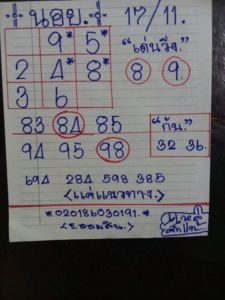 นอย. 17/11.
9* 5* "เด่นวิ่ง."
2 4* 8* 8 9.
3 6
83 84 85 "กัน."
94 95 98 32 36.
694 284 598 385
<แค่แนวทาง.>
*020186030191.*
<ธ.ออมสิน.>